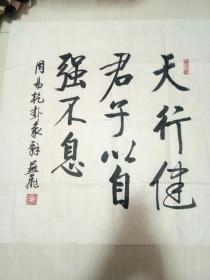 天行健
君子以自
强不息
周易乾卦象辞